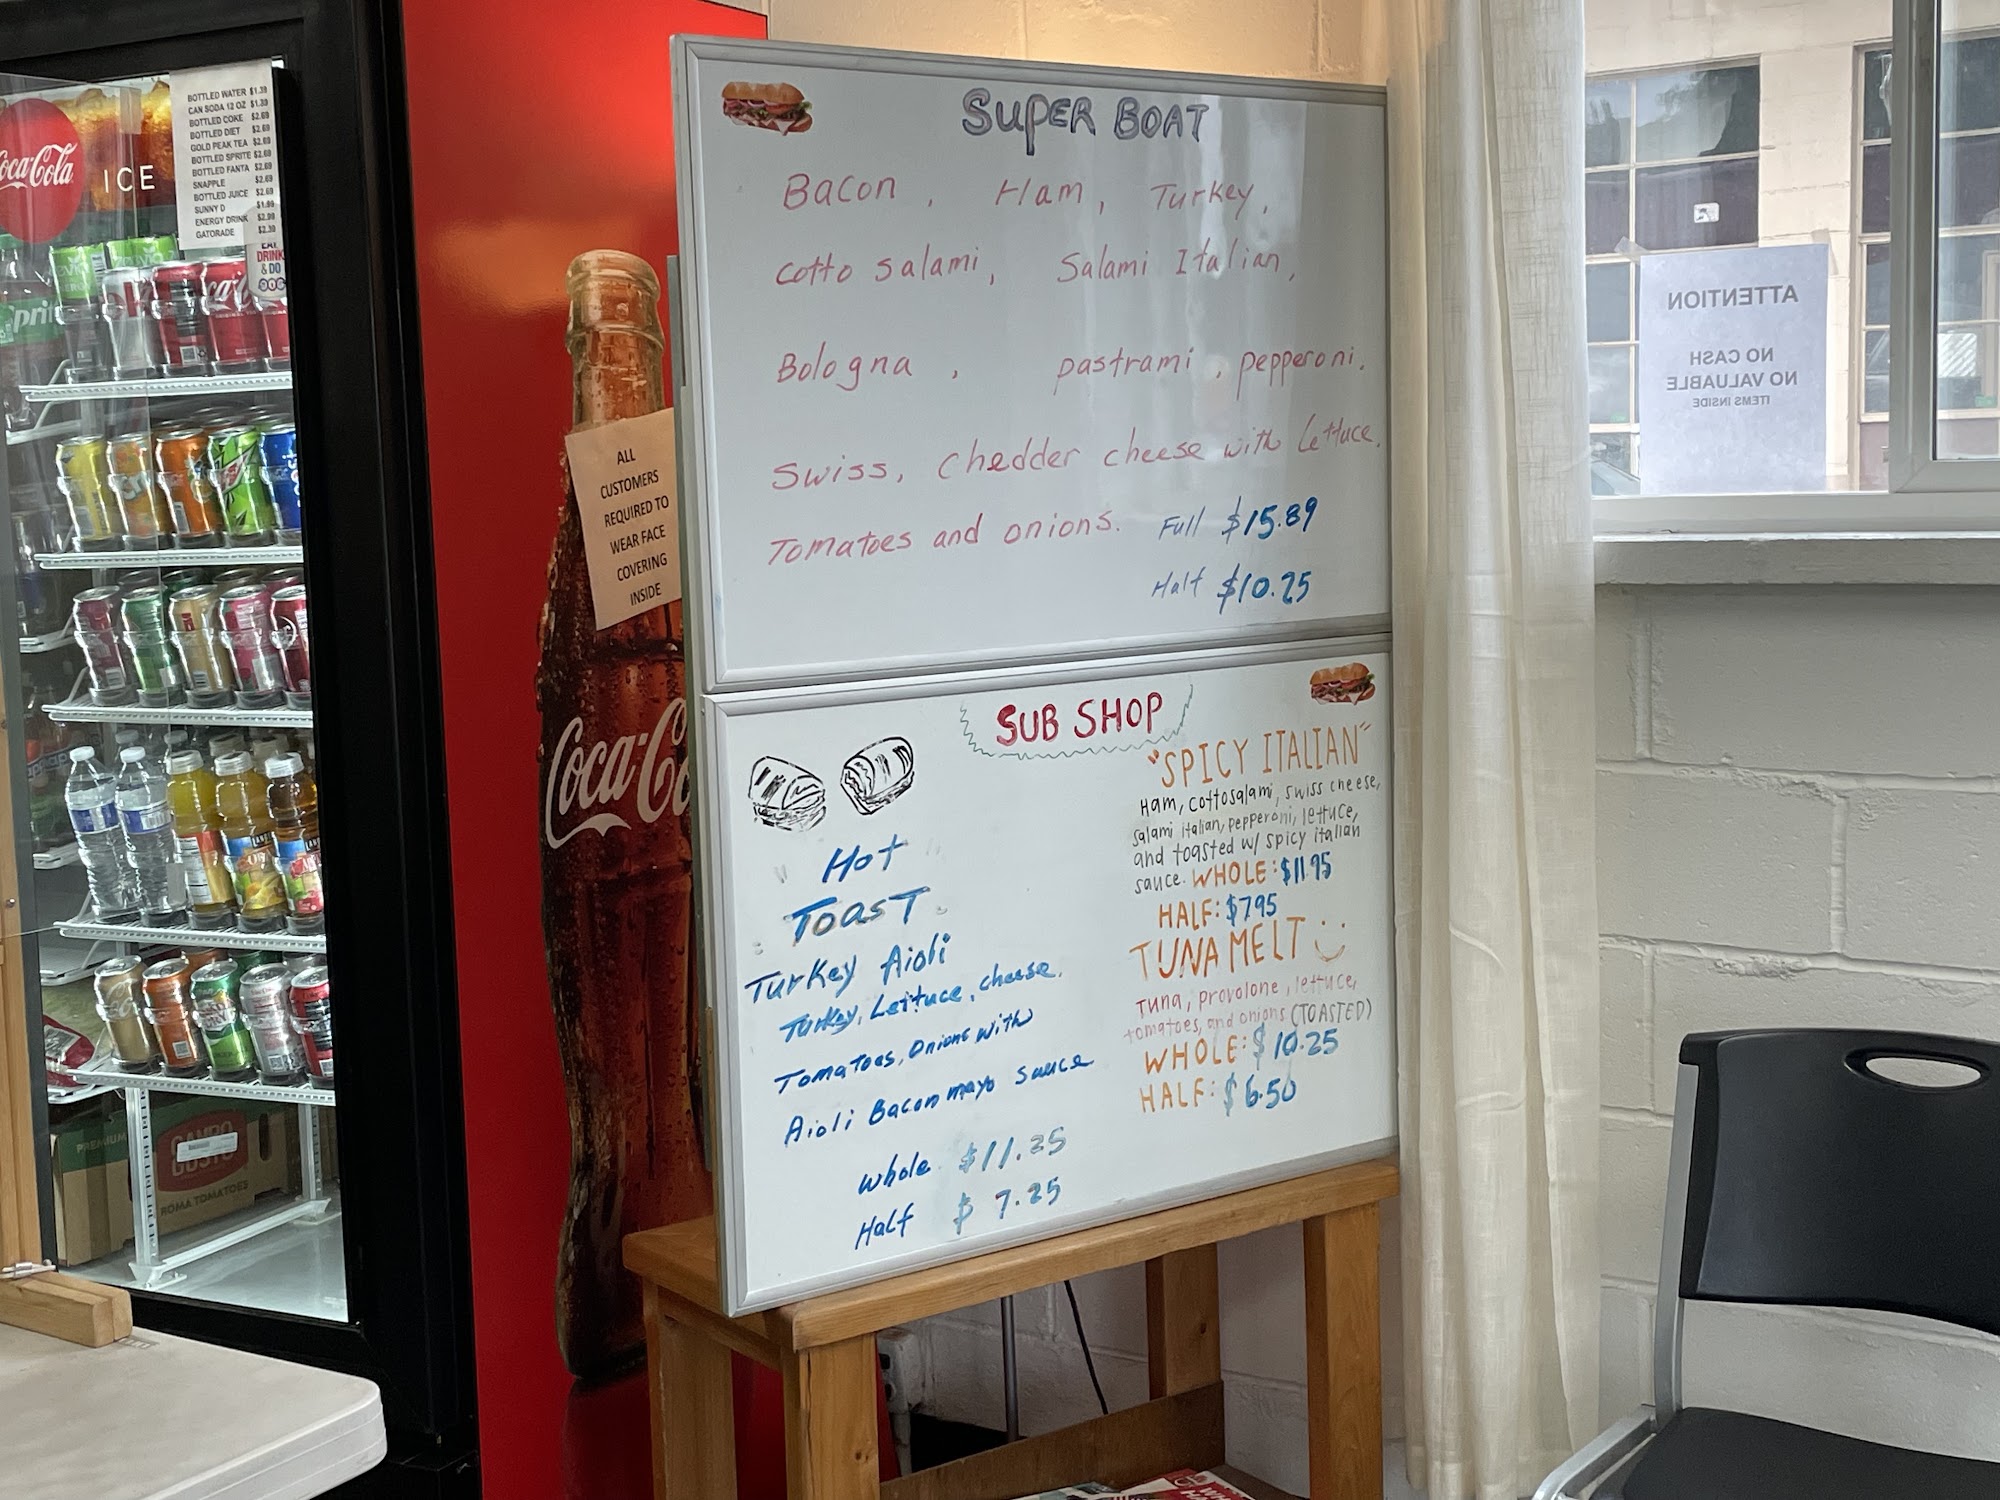 BOTTLED WATER $1.39
CAN SODA 12 OZ $1.39
BOTTLED COKE $2.69
BOTTLED DIET $2.69
GOLD PEAK TEA $2.69
BOTTLED SPRITE $2.69
BOTTLED FANTA $2.69
SNAPPLE $2.69
BOTTLED JUICE $2.69
SUNNY D $1.99
ENERGY DRINK $2.99
GATORADE $2.39
Coca-Cola
ICE
EAT
DRINK
& DO
ALL
CUSTOMERS
REQUIRED TO
WEAR FACE
COVERING
INSIDE
Coca-Co
PREMIUM
GAMBO
GUSTO
ROMA TOMATOES
SUPER BOAT
Bacon, Ham, Turkey,
cotto salami, Salami Italian,
Bologna, pastrami, pepperoni.
Swiss, chedder cheese with Lettuce.
Tomatoes and onions. Full $15.89
Half $10.25
SUB SHOP
Hot
Toast
Turkey Aioli
Turkey, Lettuce, cheese.
Tomatoes, Onions with
Aioli Bacon mayo sauce
whole $11.25
Half $7.25
"SPICY ITALIAN"
Ham, cottosalami, swiss cheese,
salami italian, pepperoni, lettuce,
and toasted w/ spicy italian
sauce. WHOLE: $11.95
HALF: $7.95
TUNA MELT
Tuna, provolone, lettuce,
tomatoes, and onions (TOASTED)
WHOLE: $10.25
HALF: $6.50
ATTENTION
NO CASH
NO VALUABLE
ITEMS INSIDE